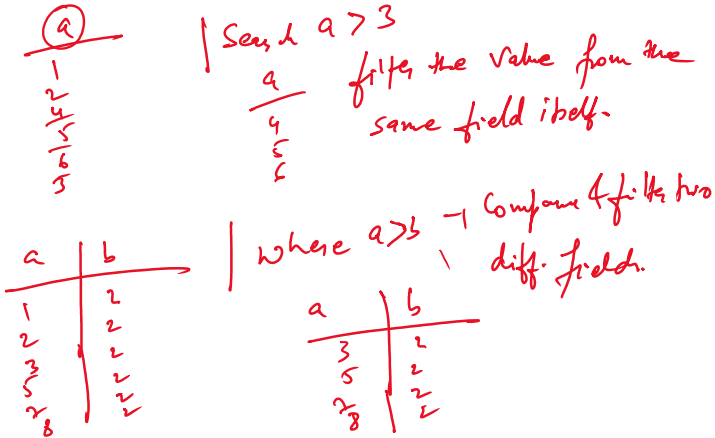 a
1
2
4
5
6
3
| Search a > 3
a
4
5
6
filter the value from the
same field itself.
a b
1 2
2 2
3 2
5 2
7 2
8 2
| where a>b → Compare & filter two
diff. fields.
a b
3 2
5 2
7 2
8 2